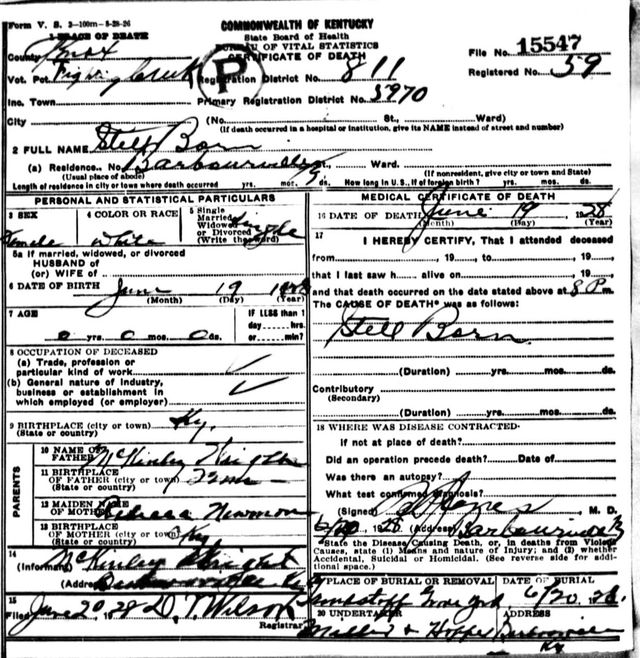 Form V. S. 3-100m-8-28-26
COMMONWEALTH OF KENTUCKY
State Board of Health
BUREAU OF VITAL STATISTICS
CERTIFICATE OF DEATH
1 PLACE OF DEATH
County Knox
File No. 15547
Vot. Pct. Creek
P
Registration District No. 811
Registered No. 59
Inc. Town
Primary Registration District No. 5970
City (No. St., Ward)
(If death occurred in a hospital or institution, give its NAME instead of street and number)
2 FULL NAME Still Born
(a) Residence. No. Barbourville Ky St. Ward.
(Usual place of abode) (If nonresident, give city or town and State)
Length of residence in city or town where death occurred yrs. mos. ds. How long in U.S., if of foreign birth? yrs. mos. ds.
PERSONAL AND STATISTICAL PARTICULARS
3 SEX
4 COLOR OR RACE
5 Single
Married
Widowed
or Divorced
(Write the word)
Single
Female White
5a If married, widowed, or divorced
HUSBAND of
(or) WIFE of
6 DATE OF BIRTH June 19 1928
(Month) (Day) (Year)
7 AGE
IF LESS than 1
day hrs.
or min.?
0 yrs. 0 mos. 0 ds.
8 OCCUPATION OF DECEASED
(a) Trade, profession or
particular kind of work
(b) General nature of industry,
business or establishment in
which employed (or employer)
9 BIRTHPLACE (city or town) Ky.
(State or country)
PARENTS
10 NAME OF
FATHER McKinley Wright
11 BIRTHPLACE
OF FATHER (city or town) Tenn
(State or country)
12 MAIDEN NAME
OF MOTHER Rebecca
13 BIRTHPLACE
OF MOTHER (city or town) Ky.
(State or country)
14
(Informant) McKinley Wright
(Address) Barbourville Ky
15
Filed June 20 1928 D. T. Wilson
Registrar
MEDICAL CERTIFICATE OF DEATH
16 DATE OF DEATH June 19 1928
(Month) (Day) (Year)
17
I HEREBY CERTIFY, That I attended deceased
from 19 to 19
that I last saw h alive on 19
and that death occurred on the date stated above at 8 P m.
The CAUSE OF DEATH* was as follows:
Still Born
(Duration) yrs. mos. ds.
Contributory
(Secondary)
(Duration) yrs. mos. ds.
18 WHERE WAS DISEASE CONTRACTED
if not at place of death?
Did an operation precede death? Date of
Was there an autopsy?
What test confirmed diagnosis?
(Signed) M. D.
6/20 1928 (Address) Barbourville Ky
*State the Disease Causing Death, or, in deaths from Violent
Causes, state (1) Means and nature of Injury; and (2) whether
Accidental, Suicidal or Homicidal. (See reverse side for
additional space.)
19 PLACE OF BURIAL OR REMOVAL
DATE OF BURIAL
Grave yard 6/20 28
20 UNDERTAKER
ADDRESS
Miller & Hopper Barbourville
Ky